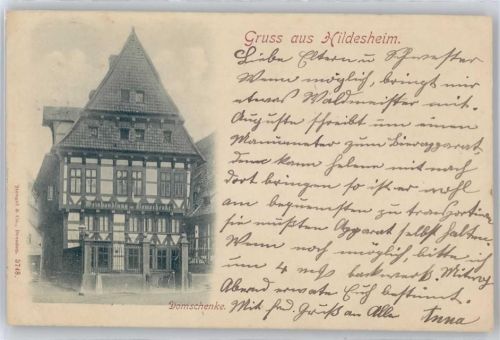 Gruss aus Hildesheim.
Liebe Eltern u Schwester
Wenn möglich, bringt mir
etwas Waldmeister mit.
Auguste schreibt um einen
Manometer zum Bierapparat
dem kann helene mit nach
dort bringen so ist er wohl
am bequemsten zu transportiren
sie müssten Apparat selbst halten.
Wenn noch möglich, bitte ich
um 4 backwerk. Mittwoch
Abend erwarte Euch bestimmt.
Mit frd. Gruß an Alle Anna
Weinhandlung
Domschenke.
Stengel & Co., Dresden. 3748.